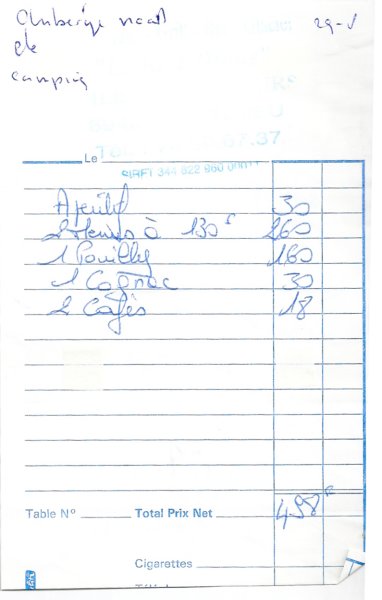 Auberge 29-5
de
camping
67.37
Le
SIRET 344 622 960
Apéritif 30
2 Menus à 130F 260
1 Pouilly 160
1 Cognac 30
2 Cafés 18
Table N° Total Prix Net 498F
Cigarettes